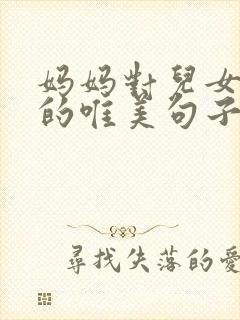 妈妈對兒女
的唯美句子
尋找失落的愛